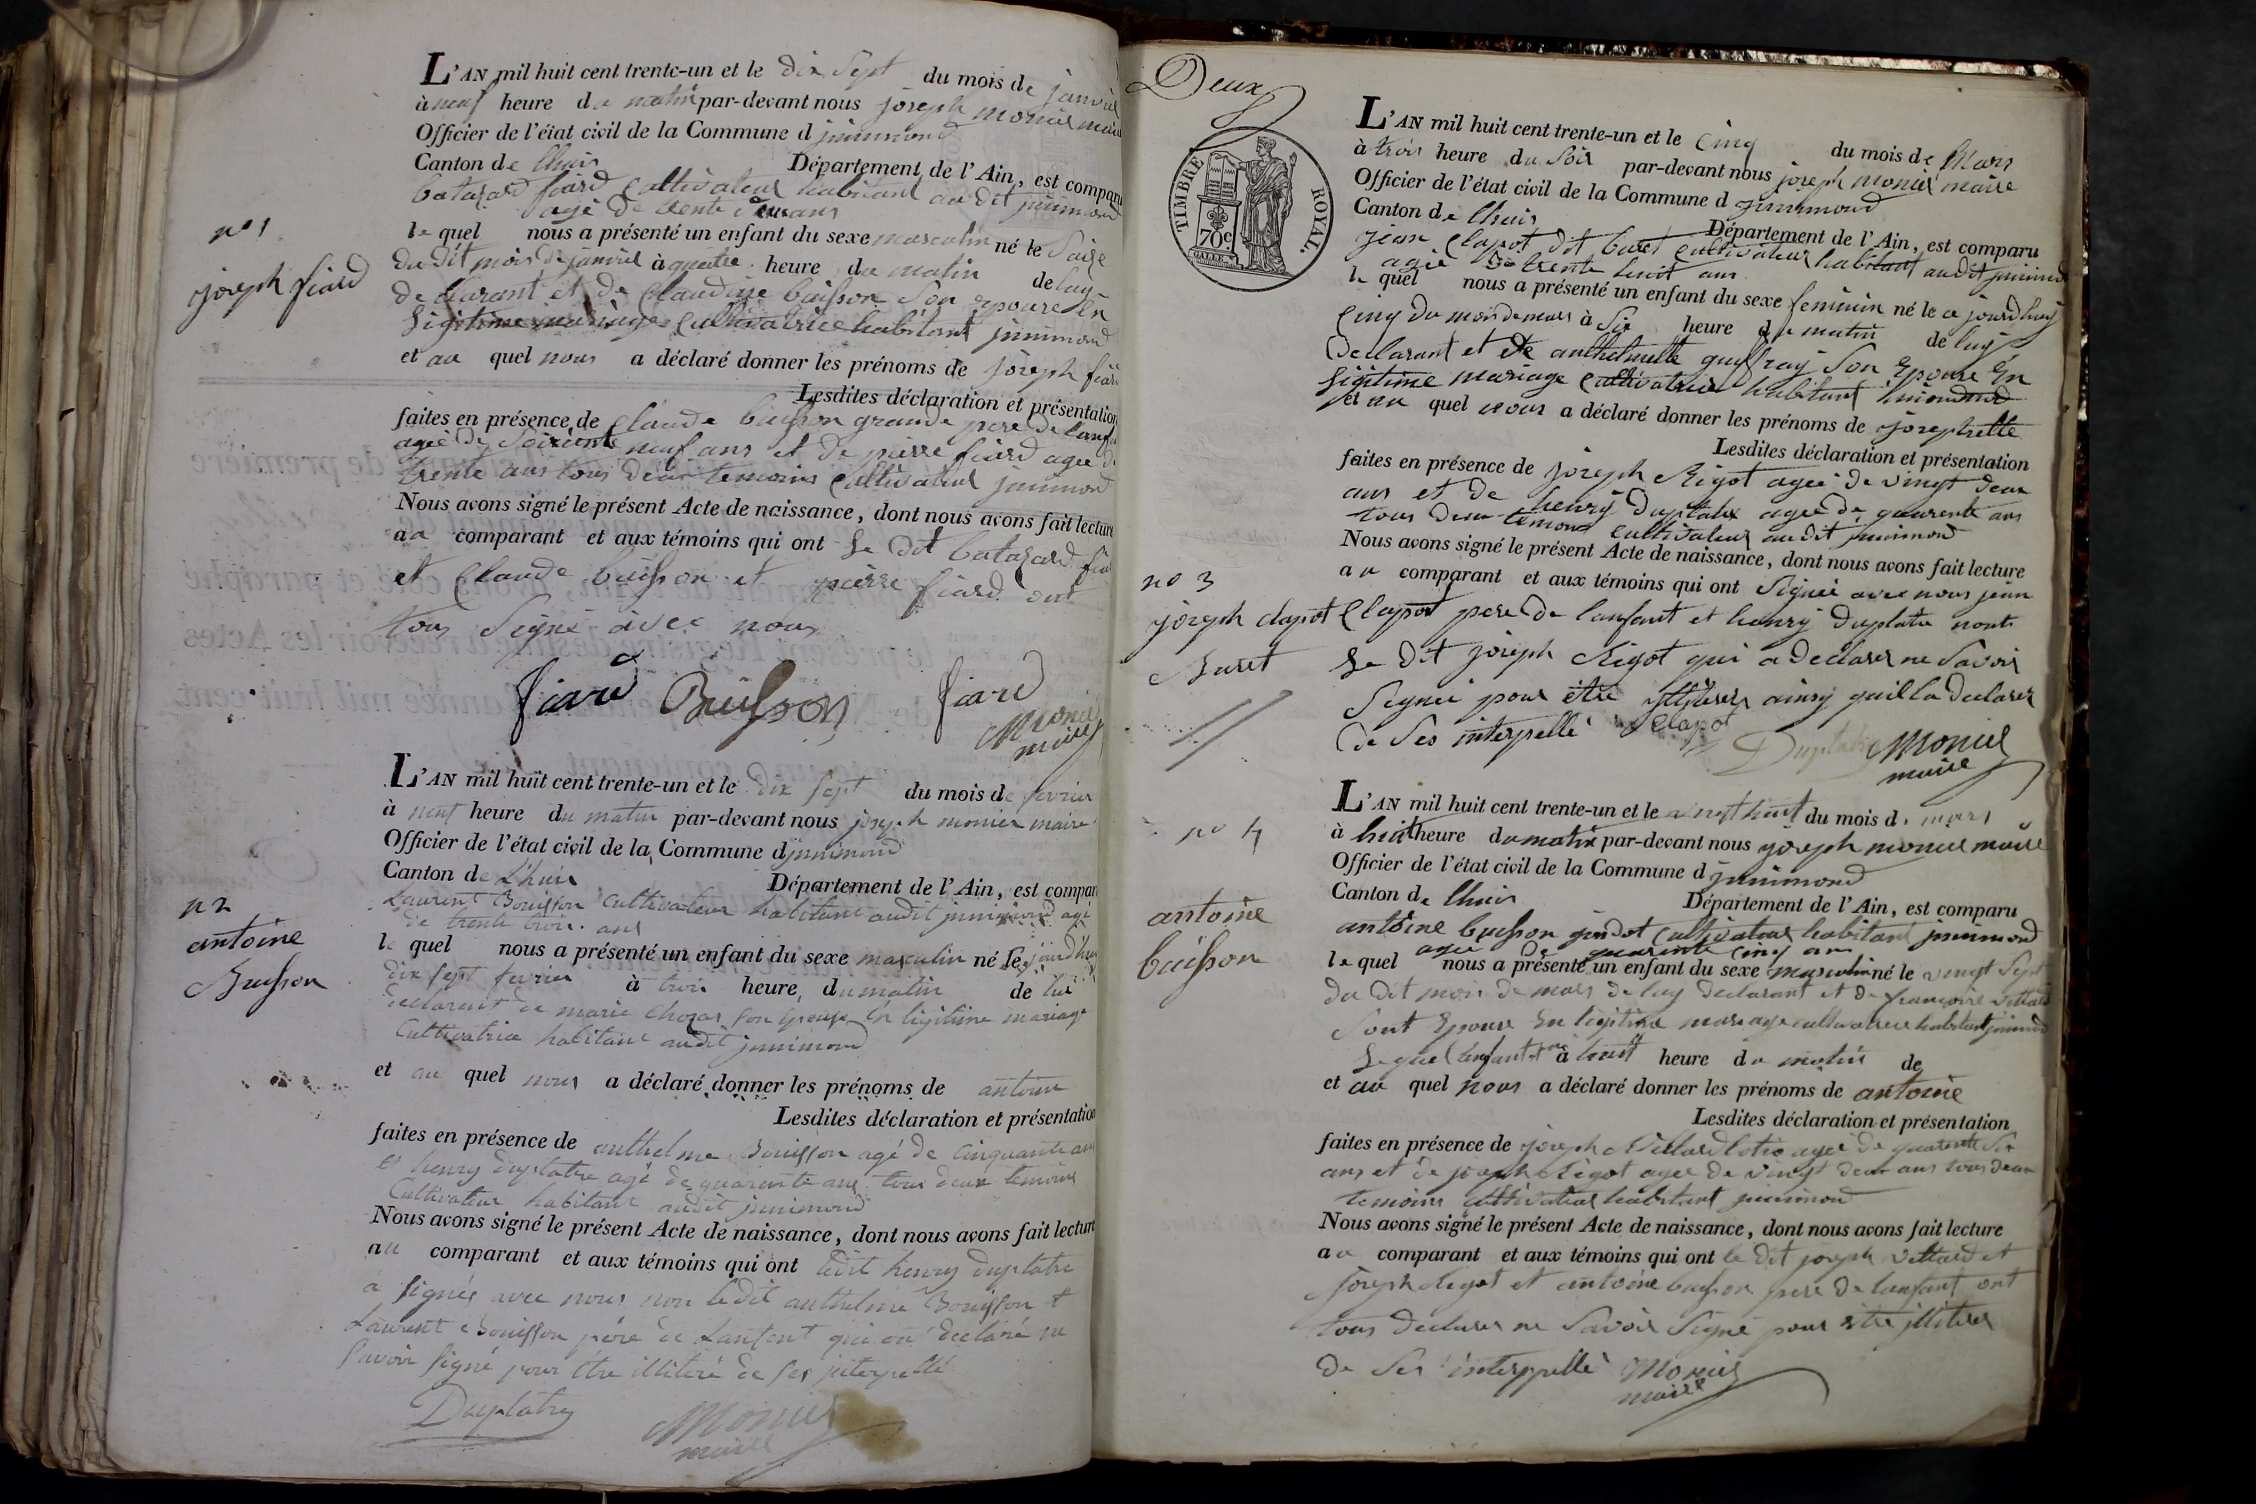 L'AN mil huit cent trente-un et le dix sept du mois de janvier
à neuf heure du matin par-devant nous joseph monier maire
Officier de l'état civil de la Commune d jnnimond
Canton de lhuis Département de l'Ain, est comparu
batazard fiard cultivateur habitant au dit jnnimond
agé de trente ans
n° 1
joseph fiard
le quel nous a présenté un enfant du sexe masculin né le saize
du dit mois de janvier à quatre heure du matin de luy
declarant et de claudine buisson son epouse en
ligitime mariage cultivatrice habitant jnnimond
et au quel nous a déclaré donner les prénoms de joseph fiard
Lesdites déclaration et présentation
faites en présence de claude buisson grande pere de lanfa
agé de soixente neuf ans et de pierre fiard agee de
trente ans tous deux temoins cultivateur jnnimond
Nous avons signé le présent Acte de naissance, dont nous avons fait lecture
au comparant et aux témoins qui ont le dit batazard fiar
et claude buisson et pierre fiard ont
tous signé avec nous
fiard Buisson fiard
Monier
maire
L'AN mil huit cent trente-un et le dix sept du mois de fevrier
à neuf heure du matin par-devant nous joseph monier maire
Officier de l'état civil de la Commune d jnnimond
Canton de Lhuis Département de l'Ain, est compar
Laurent Bouisson cultivateur habitant audit jnnimond agé
de trente trois ans
n 2
antoine
Buisson
le quel nous a présenté un enfant du sexe masculin né le jourdhuy
dix sept fevrier à trois heure du matin de lui
declarent de marie son epouse en ligitime mariage
cultivatrice habitant audit jnnimond
et au quel nous a déclaré donner les prénoms de antoine
Lesdites déclaration et présentation
faites en présence de anthelme Bouisson agé de cinquante ans
et henry duplatre agé de quarente ans tous deux temoins
cultivateur habitant audit jnnimond
Nous avons signé le présent Acte de naissance, dont nous avons fait lecture
au comparant et aux témoins qui ont ledit henry duplatre
a signés avec nous non ledit anthelme Bouisson et
Laurent Bouisson père de Lanfent qui on declaré ne
savoir signé pour être illitéré de ses interpellé
Duplatre Monier
maire
Deux
TIMBRE ROYAL.
70c
L'AN mil huit cent trente-un et le cinq du mois de Mars
à trois heure du soir par-devant nous joseph monier maire
Officier de l'état civil de la Commune d jnnimond
Canton de lhuis Département de l'Ain, est comparu
jean clapot dit buret cultivateur habitant au dit jnnimond
agée de trente huit ans
le quel nous a présenté un enfant du sexe feminin né le a jourdhuy
cinq du mois de mars à six heure du matin de luy
declarant et de anthelmette guffray son epouse en
ligitime mariage cultivatrice habitant
et au quel nous a déclaré donner les prénoms de josephette
Lesdites déclaration et présentation
faites en présence de joseph Rigot agée de vingt deux
ans et de henry duplatre agée de quarente ans
tous deux temoins cultivateur au dit jnnimond
Nous avons signé le présent Acte de naissance, dont nous avons fait lecture
au comparant et aux témoins qui ont signée avec nous jean
n° 3
joseph clapot
Buret
clapot pere de lanfant et henry duplatre nont
le dit joseph Rigot qui a declarer ne savoir
signer pour etre illiterer ainsy quil la declarer
de ses interpellé Clapot
Duplatre Monier
maire
L'AN mil huit cent trente-un et le vingt huit du mois d mars
à huit heure du matin par-devant nous joseph monier maire
Officier de l'état civil de la Commune d jnnimond
Canton de lhuis Département de l'Ain, est comparu
antoine buisson cultivateur habitant jnnimond
agée de quarente cinq an
n° 4
antoine
buisson
le quel nous a présenté un enfant du sexe masculin né le vingt sept
du dit mois de mars de luy declarant et de francoise vettard
sont epouse en ligitime mariage cultivatrice habitant jnnimond
lequel enfant né à huit heure du matin de
et au quel nous a déclaré donner les prénoms de antoine
Lesdites déclaration et présentation
faites en présence de joseph vettard agée de quarente six
ans et de joseph Rigot agee de vingt deux ans tous deux
temoins cultivateur habitant jnnimond
Nous avons signé le présent Acte de naissance, dont nous avons fait lecture
au comparant et aux témoins qui ont le dit joseph vettard et
joseph Rigot et antoine buisson pere de lanfant ont
tous declarer ne savoir signé pour etre illiterer
de ses interppellé Monier
maire